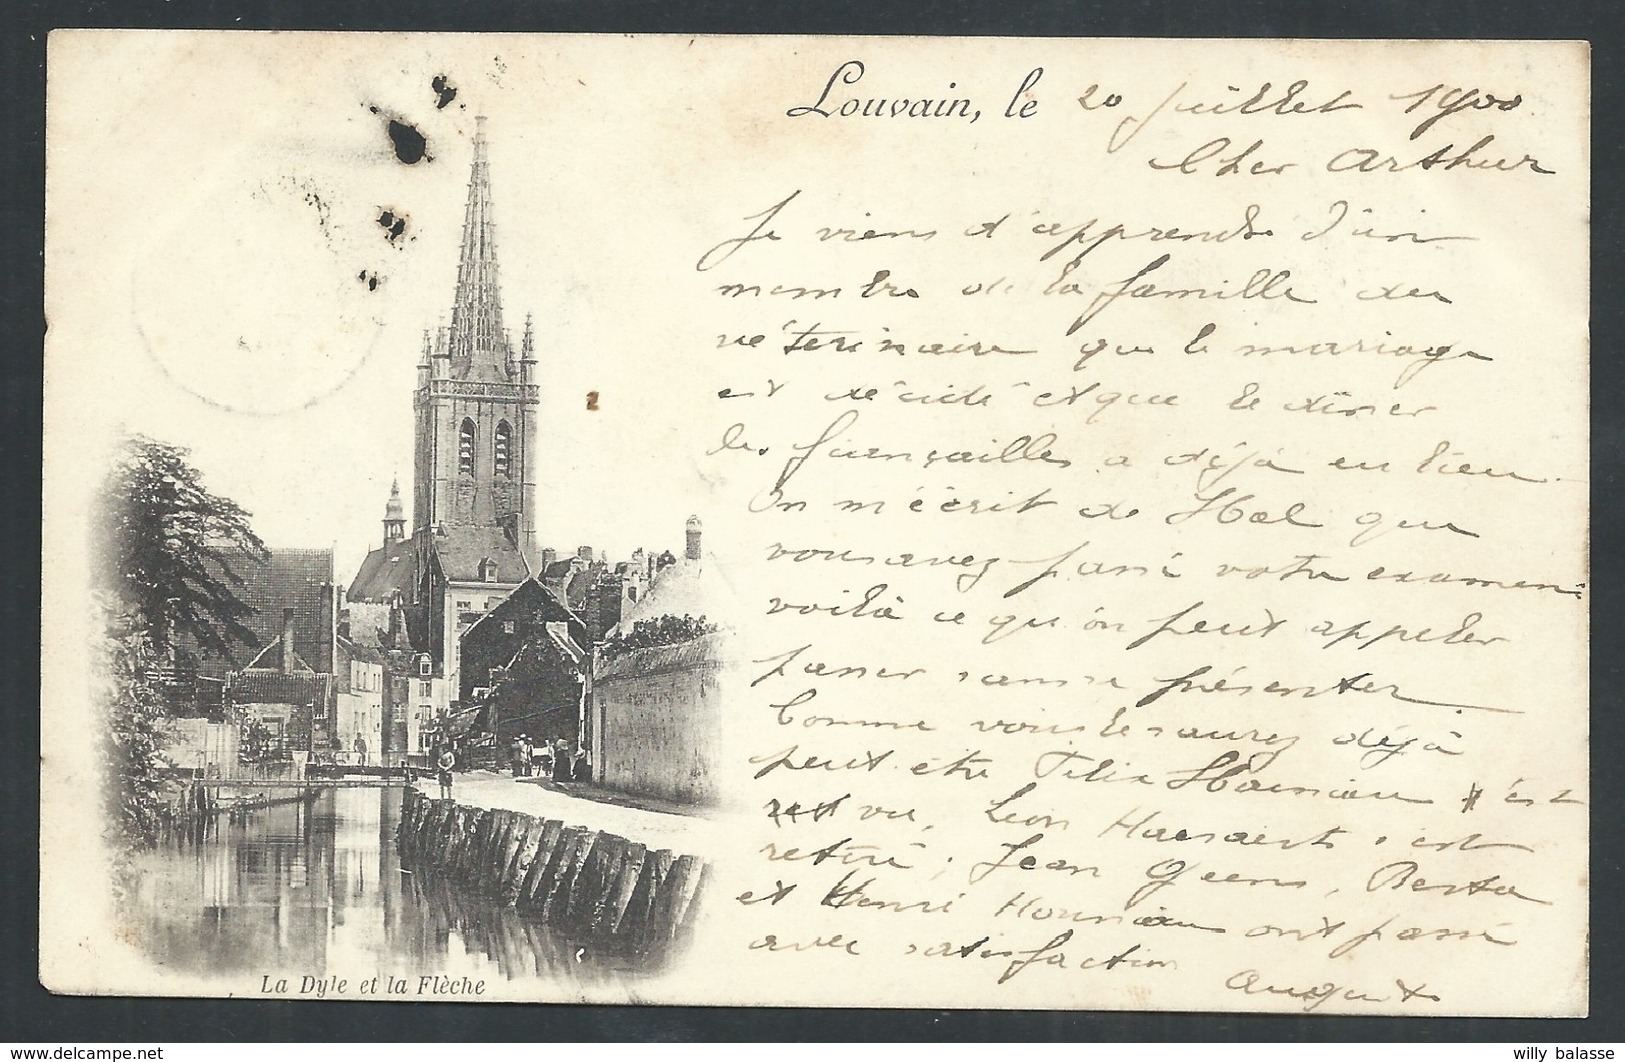 Louvain, le 20 juillet 1900
Cher Arthur
Je viens d'apprendre d'un
membre de la famille du
vétérinaire que le mariage
est décidé et que le dîner
des fiançailles a déjà eu lieu.
On m'écrit de Hal que
vous avez passé votre examen:
voilà ce qu'on peut appeler
passer sans se présenter.
Comme vous le saurez déjà
peut etre Félix s'est
vu, Léon s'est
retiré; Jean Geens, Berta
et Henri ont passé
avec satisfaction
August
La Dyle et la Flèche
willy balasse